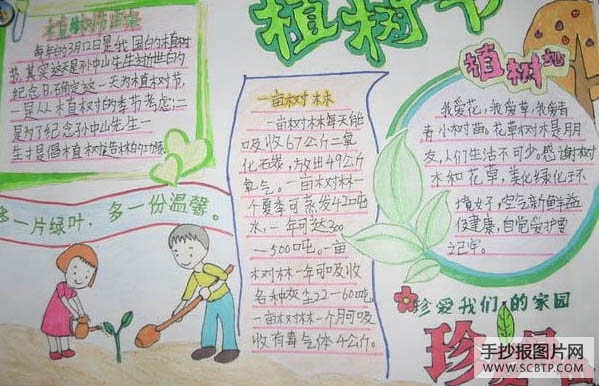 植树节
植树节由来
每年的3月12日是我国的植树
节,其实这天是孙中山先生逝世的
纪念日,确定这一天为植树节,
一是从植树的季节考虑;二
是为了纪念孙中山先生一
生提倡植树造林的功绩
多一片绿叶,多一份温馨。
一亩树林
一亩树林每天能
吸收67公斤二氧
化石炭,放出49公斤
氧气。一亩树林一
个夏季可蒸发42吨
水,一年可达300
—500吨。一亩
树林一年可吸收
各种灰尘22—60吨,
一亩树林一个月可吸
收有毒气体4公斤。
植树
我爱花,我爱草,我爱青
青小树苗。花草树木是朋
友,人们生活不可少。感谢树
木和花草,美化绿化环
境好,空气新鲜
健康,自觉爱护要
记牢。
珍爱我们的家园
珍
手抄报图片网
WWW.SCBTP.COM